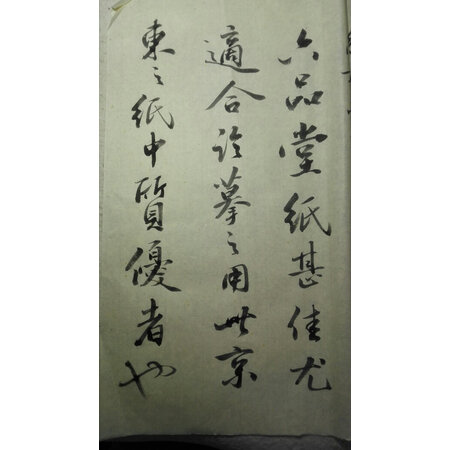 六品堂紙甚佳尤
適合臨摹之用此京
東之紙中質優者也